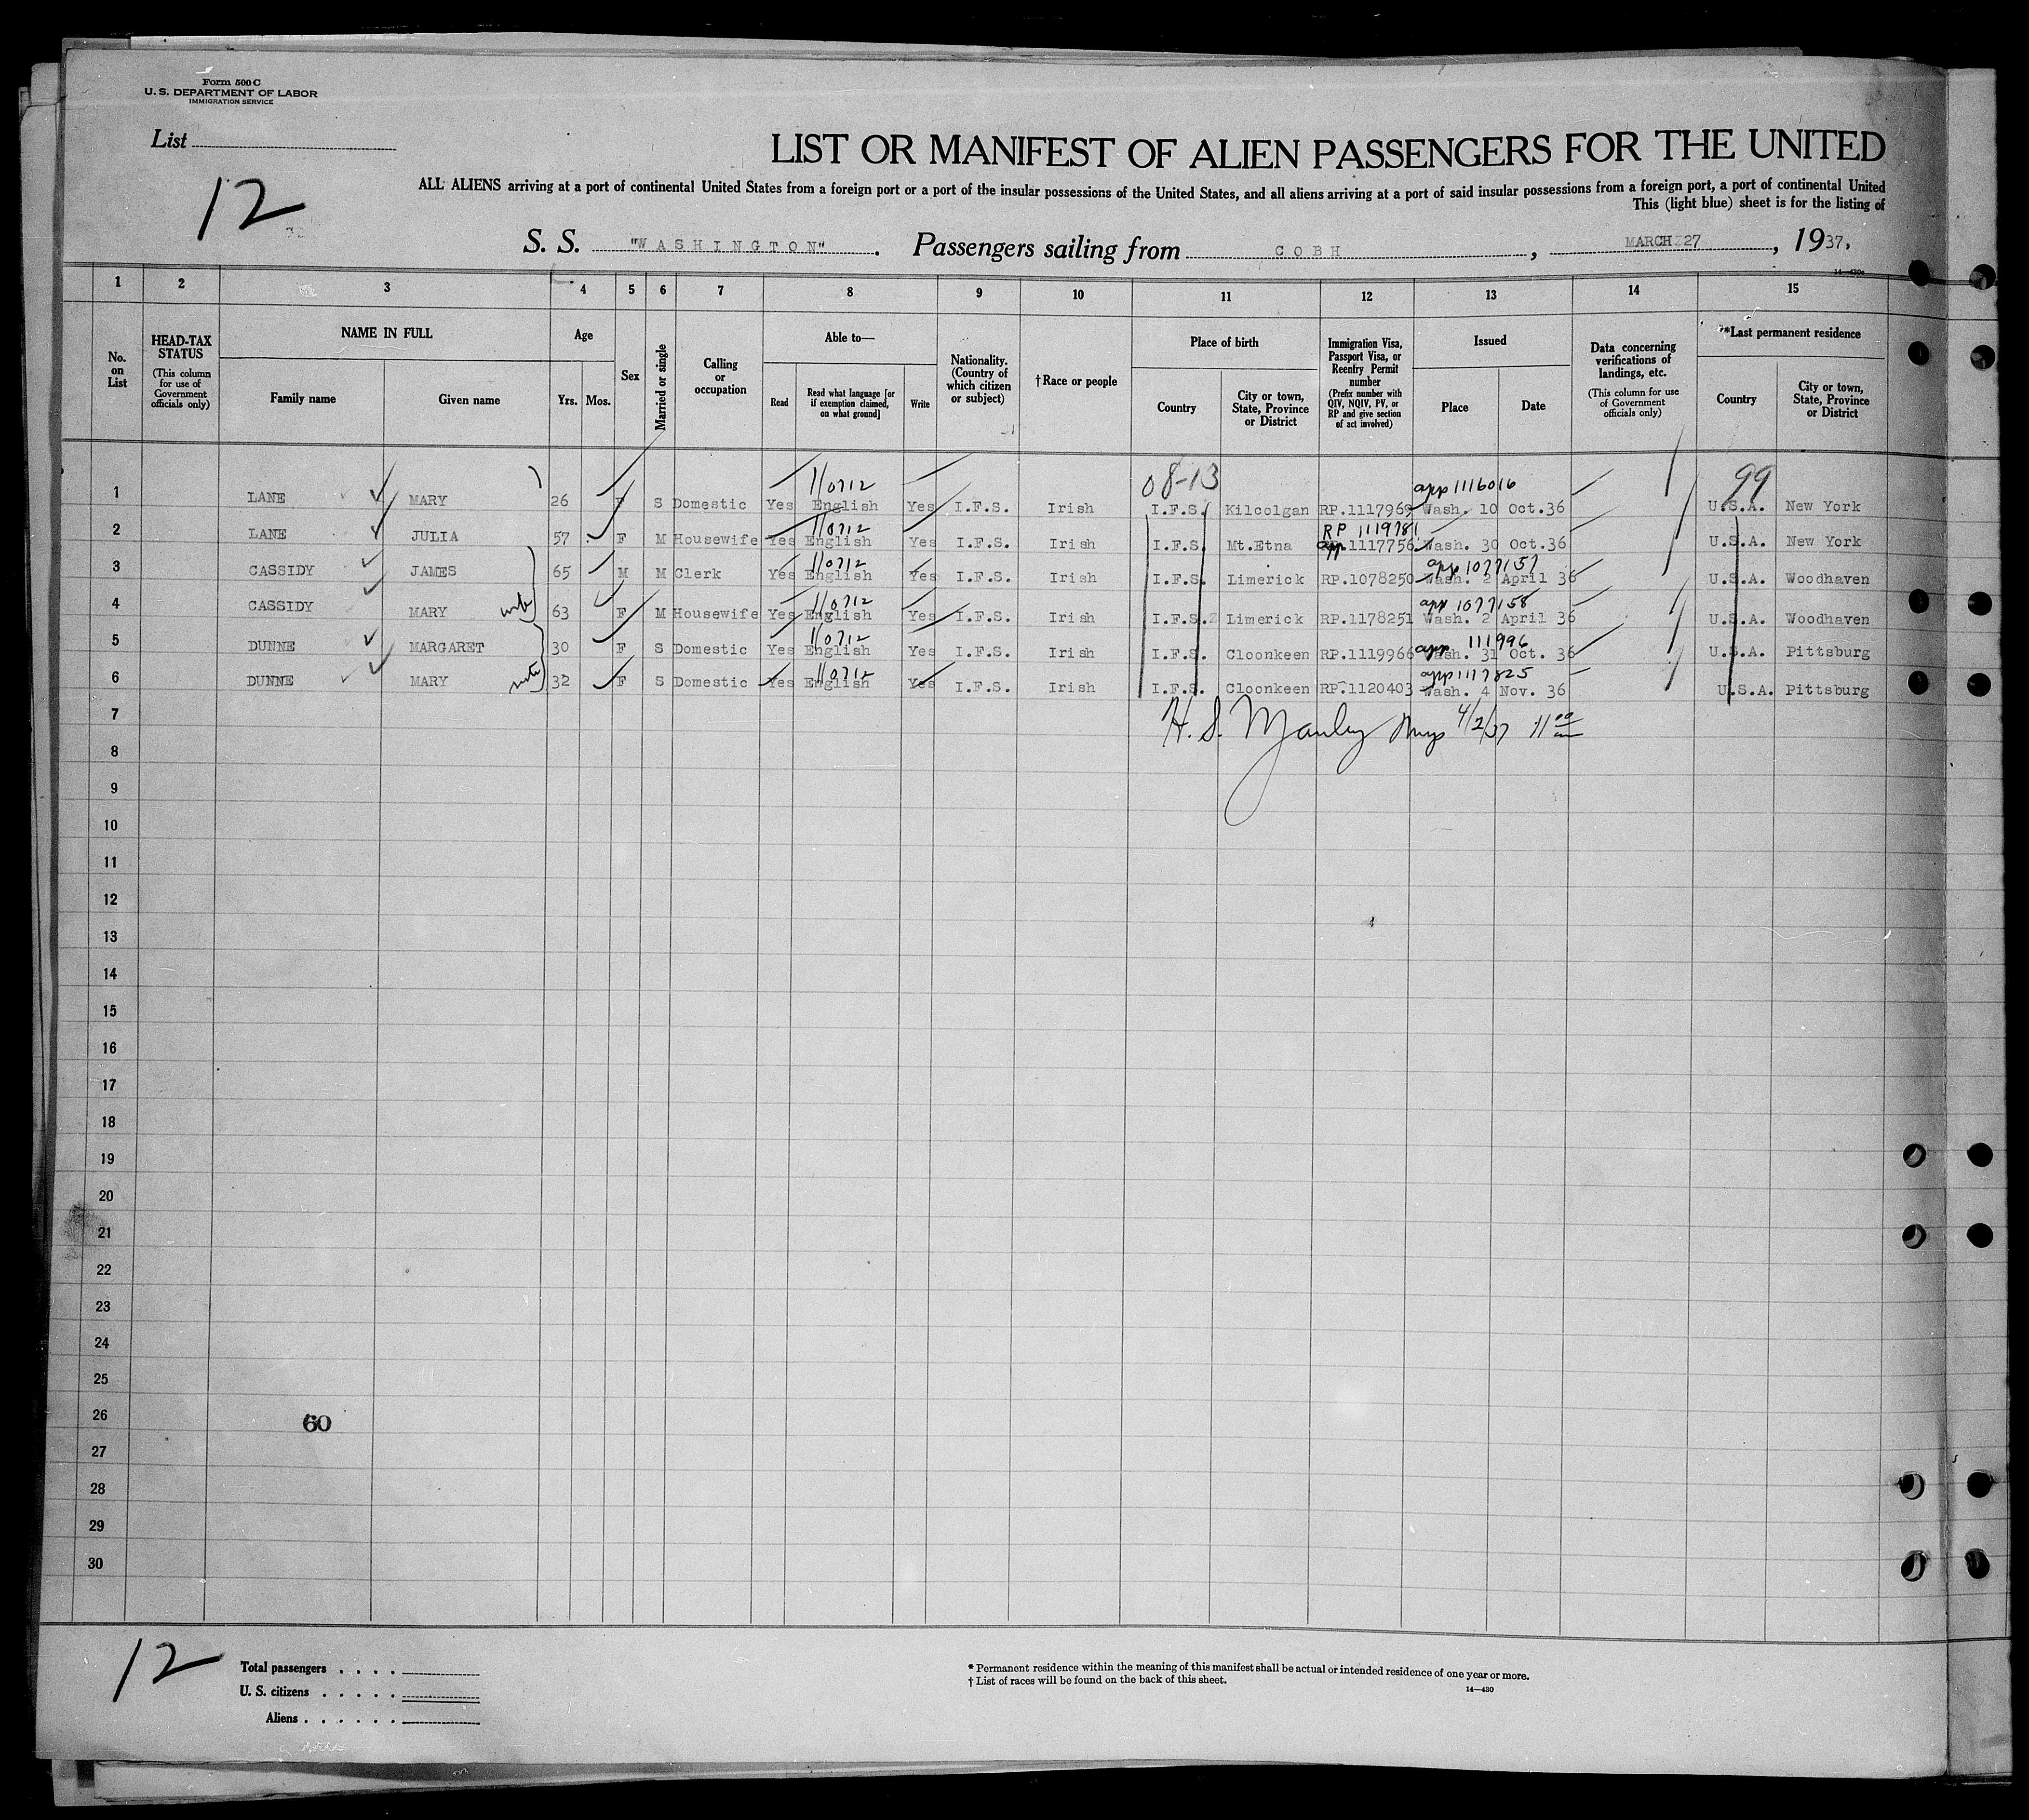 Form 500 C
U. S. DEPARTMENT OF LABOR
IMMIGRATION SERVICE
List
12
LIST OR MANIFEST OF ALIEN PASSENGERS FOR THE UNITED
ALL ALIENS arriving at a port of continental United States from a foreign port or a port of the insular possessions of the United States, and all aliens arriving at a port of said insular possessions from a foreign port, a port of continental United
This (light blue) sheet is for the listing of
S. S. "WASHINGTON". Passengers sailing from COBH, MARCH 27, 1937,
14—430c
1 2 3 4 5 6 7 8 9 10 11 12 13 14 15
No. on List
HEAD-TAX STATUS (This column for use of Government officials only)
NAME IN FULL
Family name
Given name
Age
Yrs. Mos.
Sex
Married or single
Calling or occupation
Able to—
Read
Read what language [or if exemption claimed, on what ground]
Write
Nationality. (Country of which citizen or subject)
†Race or people
Place of birth
Country
City or town, State, Province or District
Immigration Visa, Passport Visa, or Reentry Permit number (Prefix number with QIV, NQIV, PV, or RP and give section of act involved)
Issued
Place
Date
Data concerning verifications of landings, etc. (This column for use of Government officials only)
*Last permanent residence
Country
City or town, State, Province or District
110712 08-13 app 1116016 99
1 LANE MARY 26 F S Domestic Yes English Yes I.F.S. Irish I.F.S. Kilcolgan RP.1117969 Wash. 10 Oct.36 U.S.A. New York
110712 RP 1119781
2 LANE JULIA 57 F M Housewife Yes English Yes I.F.S. Irish I.F.S. Mt.Etna app.1117756 Wash. 30 Oct.36 U.S.A. New York
110712 app 1077157
3 CASSIDY JAMES 65 M M Clerk Yes English Yes I.F.S. Irish I.F.S. Limerick RP.1078250 Wash. 2 April 36 U.S.A. Woodhaven
110712 app 1077158
4 CASSIDY MARY wife 63 F M Housewife Yes English Yes I.F.S. Irish I.F.S. Limerick RP.1178251 Wash. 2 April 36 U.S.A. Woodhaven
110712 app 111996
5 DUNNE MARGARET 30 F S Domestic Yes English Yes I.F.S. Irish I.F.S. Cloonkeen RP.1119966 Wash. 31 Oct. 36 U.S.A. Pittsburg
110712 app 1117825
6 DUNNE MARY 32 F S Domestic Yes English Yes I.F.S. Irish I.F.S. Cloonkeen RP.1120403 Wash. 4 Nov. 36 U.S.A. Pittsburg
7 H. S. Manley 4/2/37 11 00 am
8
9
10
11
12
13
14
15
16
17
18
19
20
21
22
23
24
25
26
60
27
28
29
30
12
Total passengers
U. S. citizens
Aliens
* Permanent residence within the meaning of this manifest shall be actual or intended residence of one year or more.
† List of races will be found on the back of this sheet.
14—430